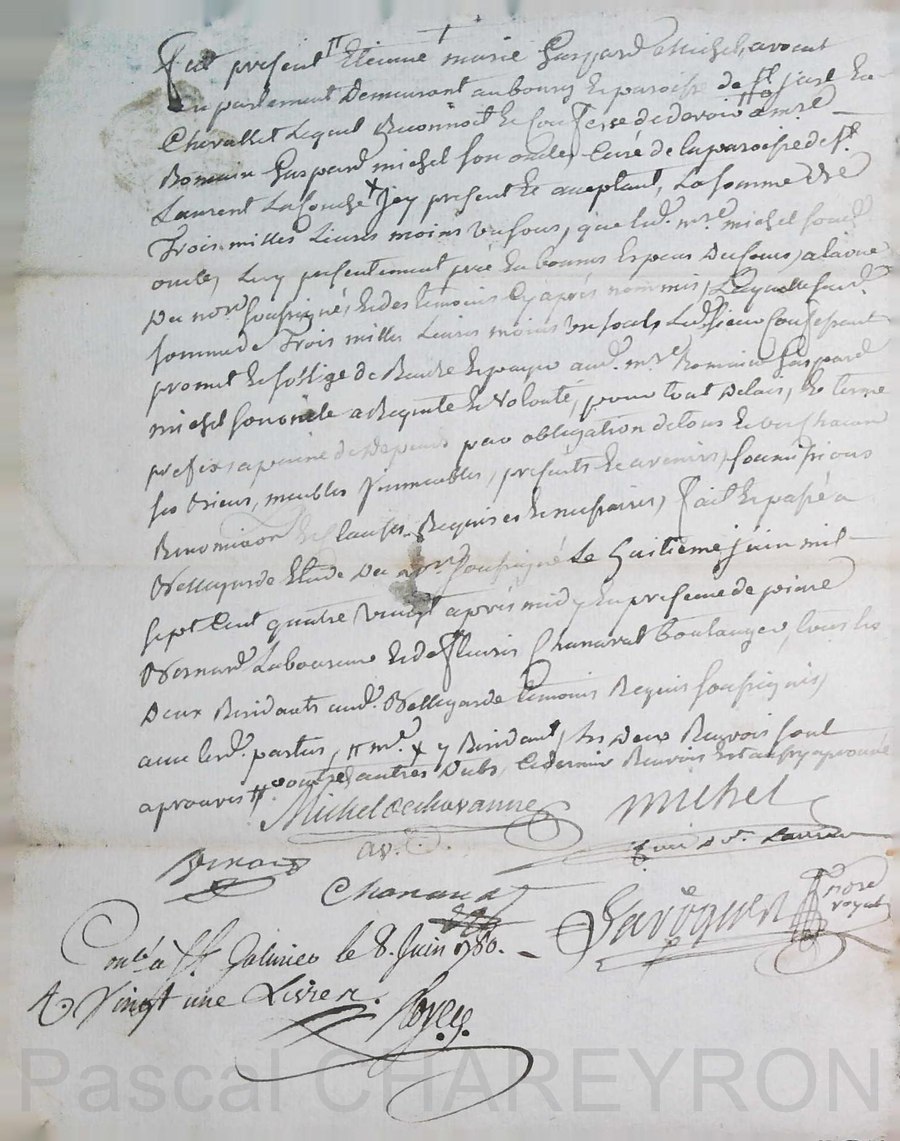 Fut present Etienne marie Gaspard Michel, avocat
en parlement Demeurant au bourg et paroisse de St just En
Chevallet Lequel Reconnoit et Confesse de devoir a mre
Romain Gaspard michel son oncle, Curé de la paroisse de St
Laurent La Conche x jcy present et aceptant, La somme de
Trois milles Livres moins un sous, que led. mre michel son
oncle, luy presentement pres en bonnes Especes Du Cours, a la vue
Du nore soussigné, et des temoins Cy aprés nommés, Laquelle
somme de Trois milles Livres moins un sols Led. sieur Confessant
promet et s'oblige de Rendre et payer aud. mre Romain Gaspard
michel son oncle a Requete et Volonté, pour tout delais, et terme
prefix, a peine de Depens par obligation de tous et
ses Biens, meubles jmmeubles, presents et avenirs, soumissions
Renontiation et Clauses Requises et necessaires, Fait et passé a
Bellegarde Etude Du nore soussigné Le huitieme juin mil
sept Cent quatre vingt aprés midy En presence de
Bernard Laboureur et de Fleuris Chanavat boulanger, tous les
Deux Residants aud. Bellegarde temoins Requis soussignés,
avec les d. parties, x y Residant, les Deux Renvois sont
aprouvés outre autres Dubs, Ce dernier Renvois Est aussy aprouvé
Michel De chavanne michel
av. Curé de St. Laurent
Bernard
Chanavat
nore royal
Conlé à St. Galmier le 8. Juin 1780.
Vingt une Livres.